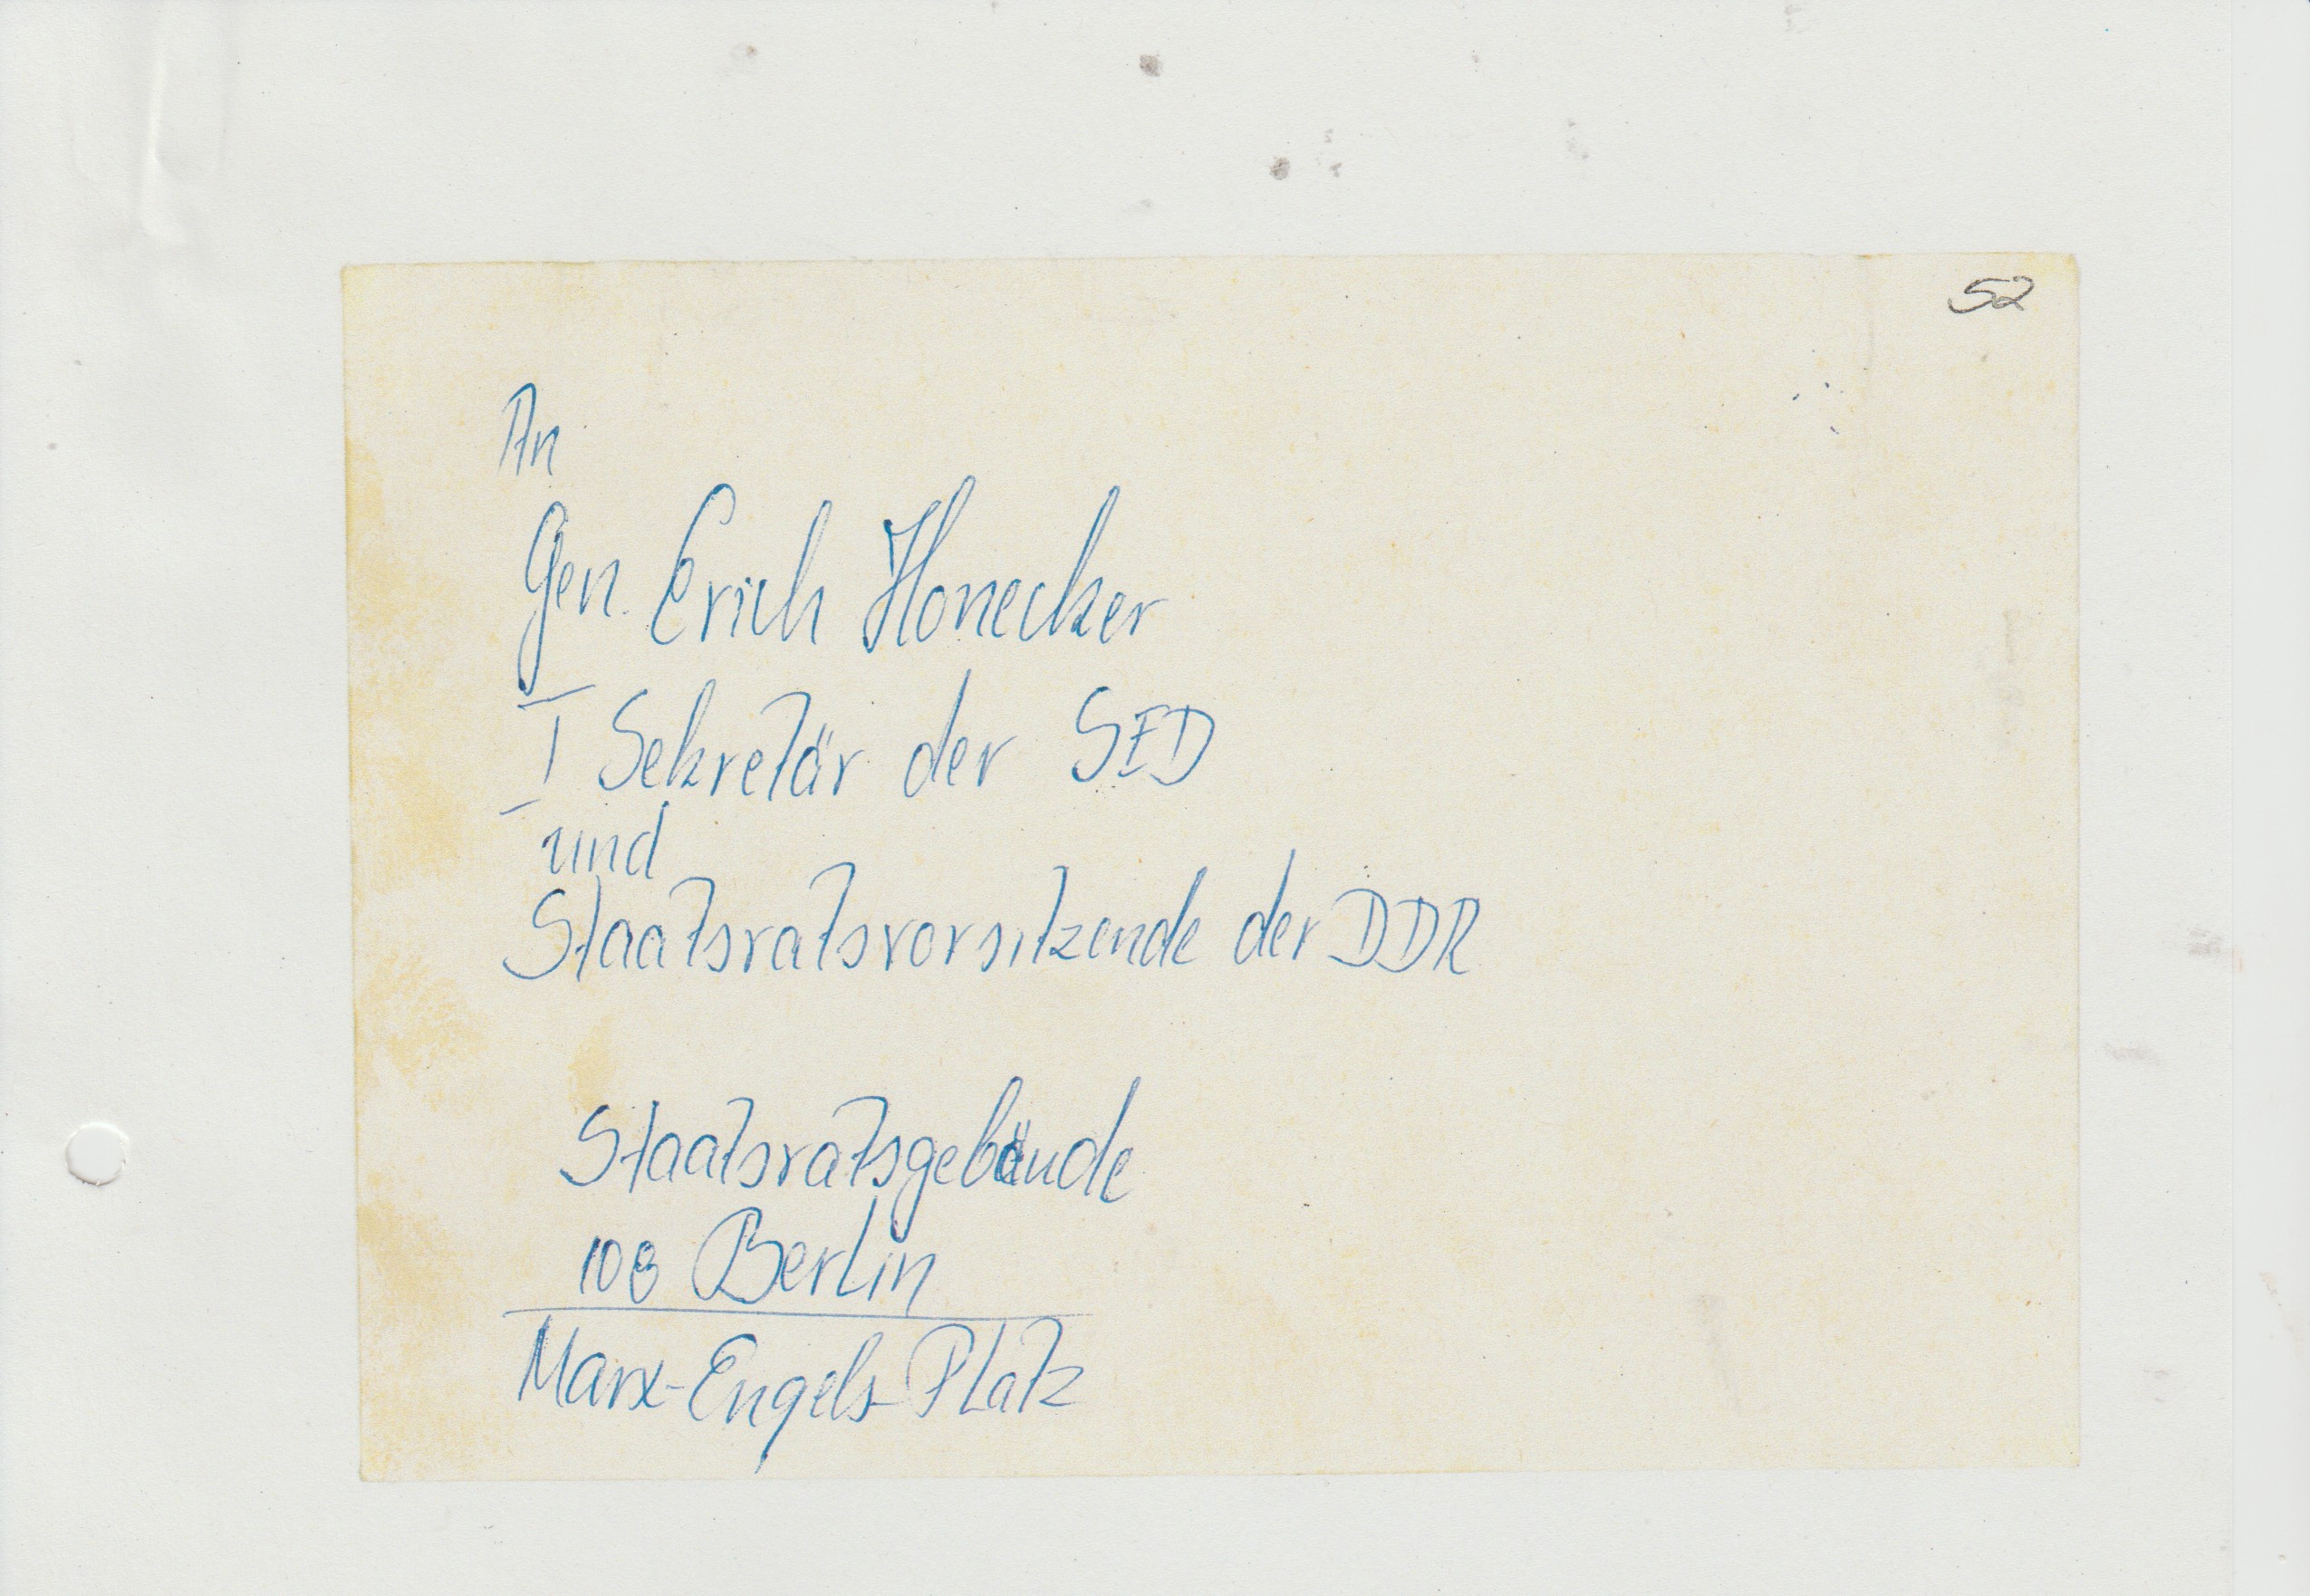 52
An
Gen. Erich Honecker
I Sekretär der SED
und
Staatsratsvorsitzende der DDR
Staatsratsgebäude
108 Berlin
Marx-Engels-Platz